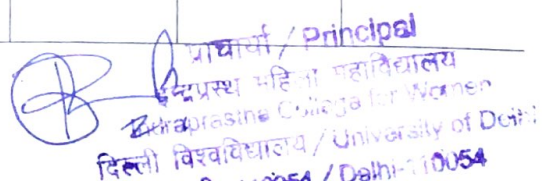 प्राचार्या / Principal
इन्द्रप्रस्थ महिला महाविद्यालय
Indraprastha College for Women
दिल्ली विश्वविद्यालय / University of Delhi
110054 / Delhi-110054